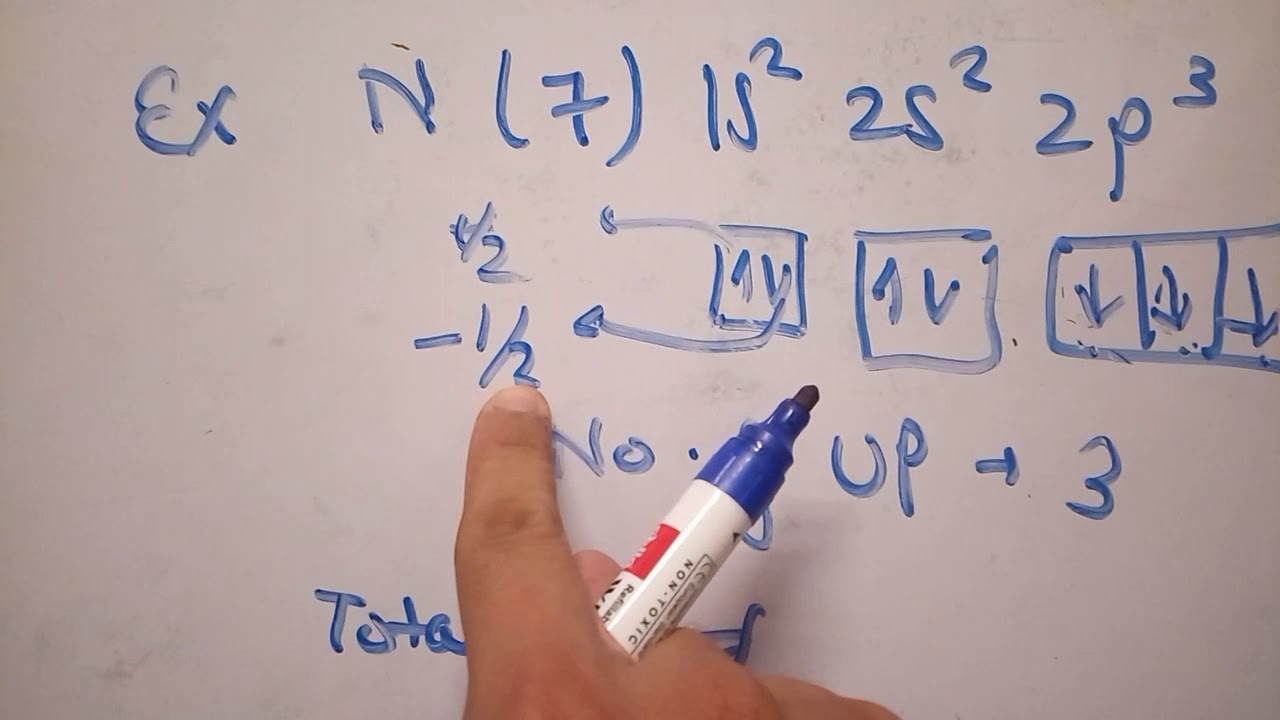 Ex N (7) 1s² 2s² 2p³
1/2
-1/2
No. UP → 3
Total
NON-TOXIC